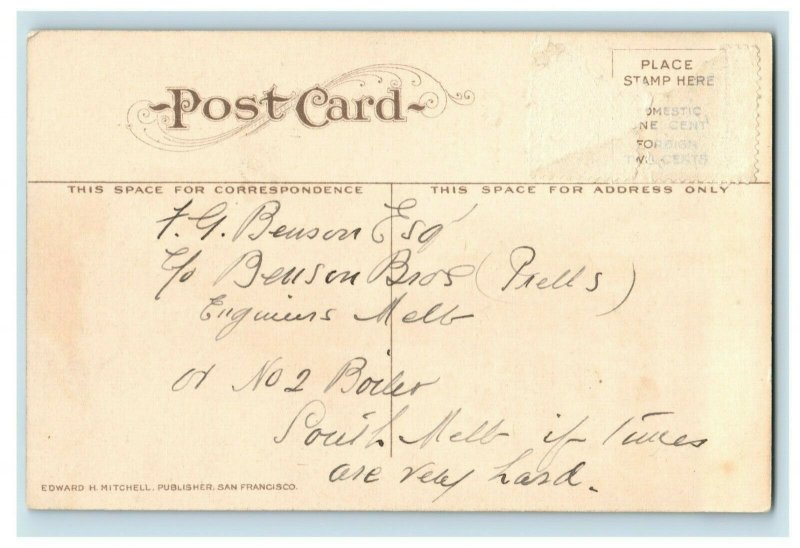 Post Card
PLACE
STAMP HERE
DOMESTIC
ONE CENT
FOREIGN
TWO CENTS
THIS SPACE FOR CORRESPONDENCE
THIS SPACE FOR ADDRESS ONLY
F. G. Benson Esq
c/o Benson Bros (Prells)
Engineers Melb
or No 2 Boiler
South Melb if Times
are very hard.
EDWARD H. MITCHELL, PUBLISHER, SAN FRANCISCO.